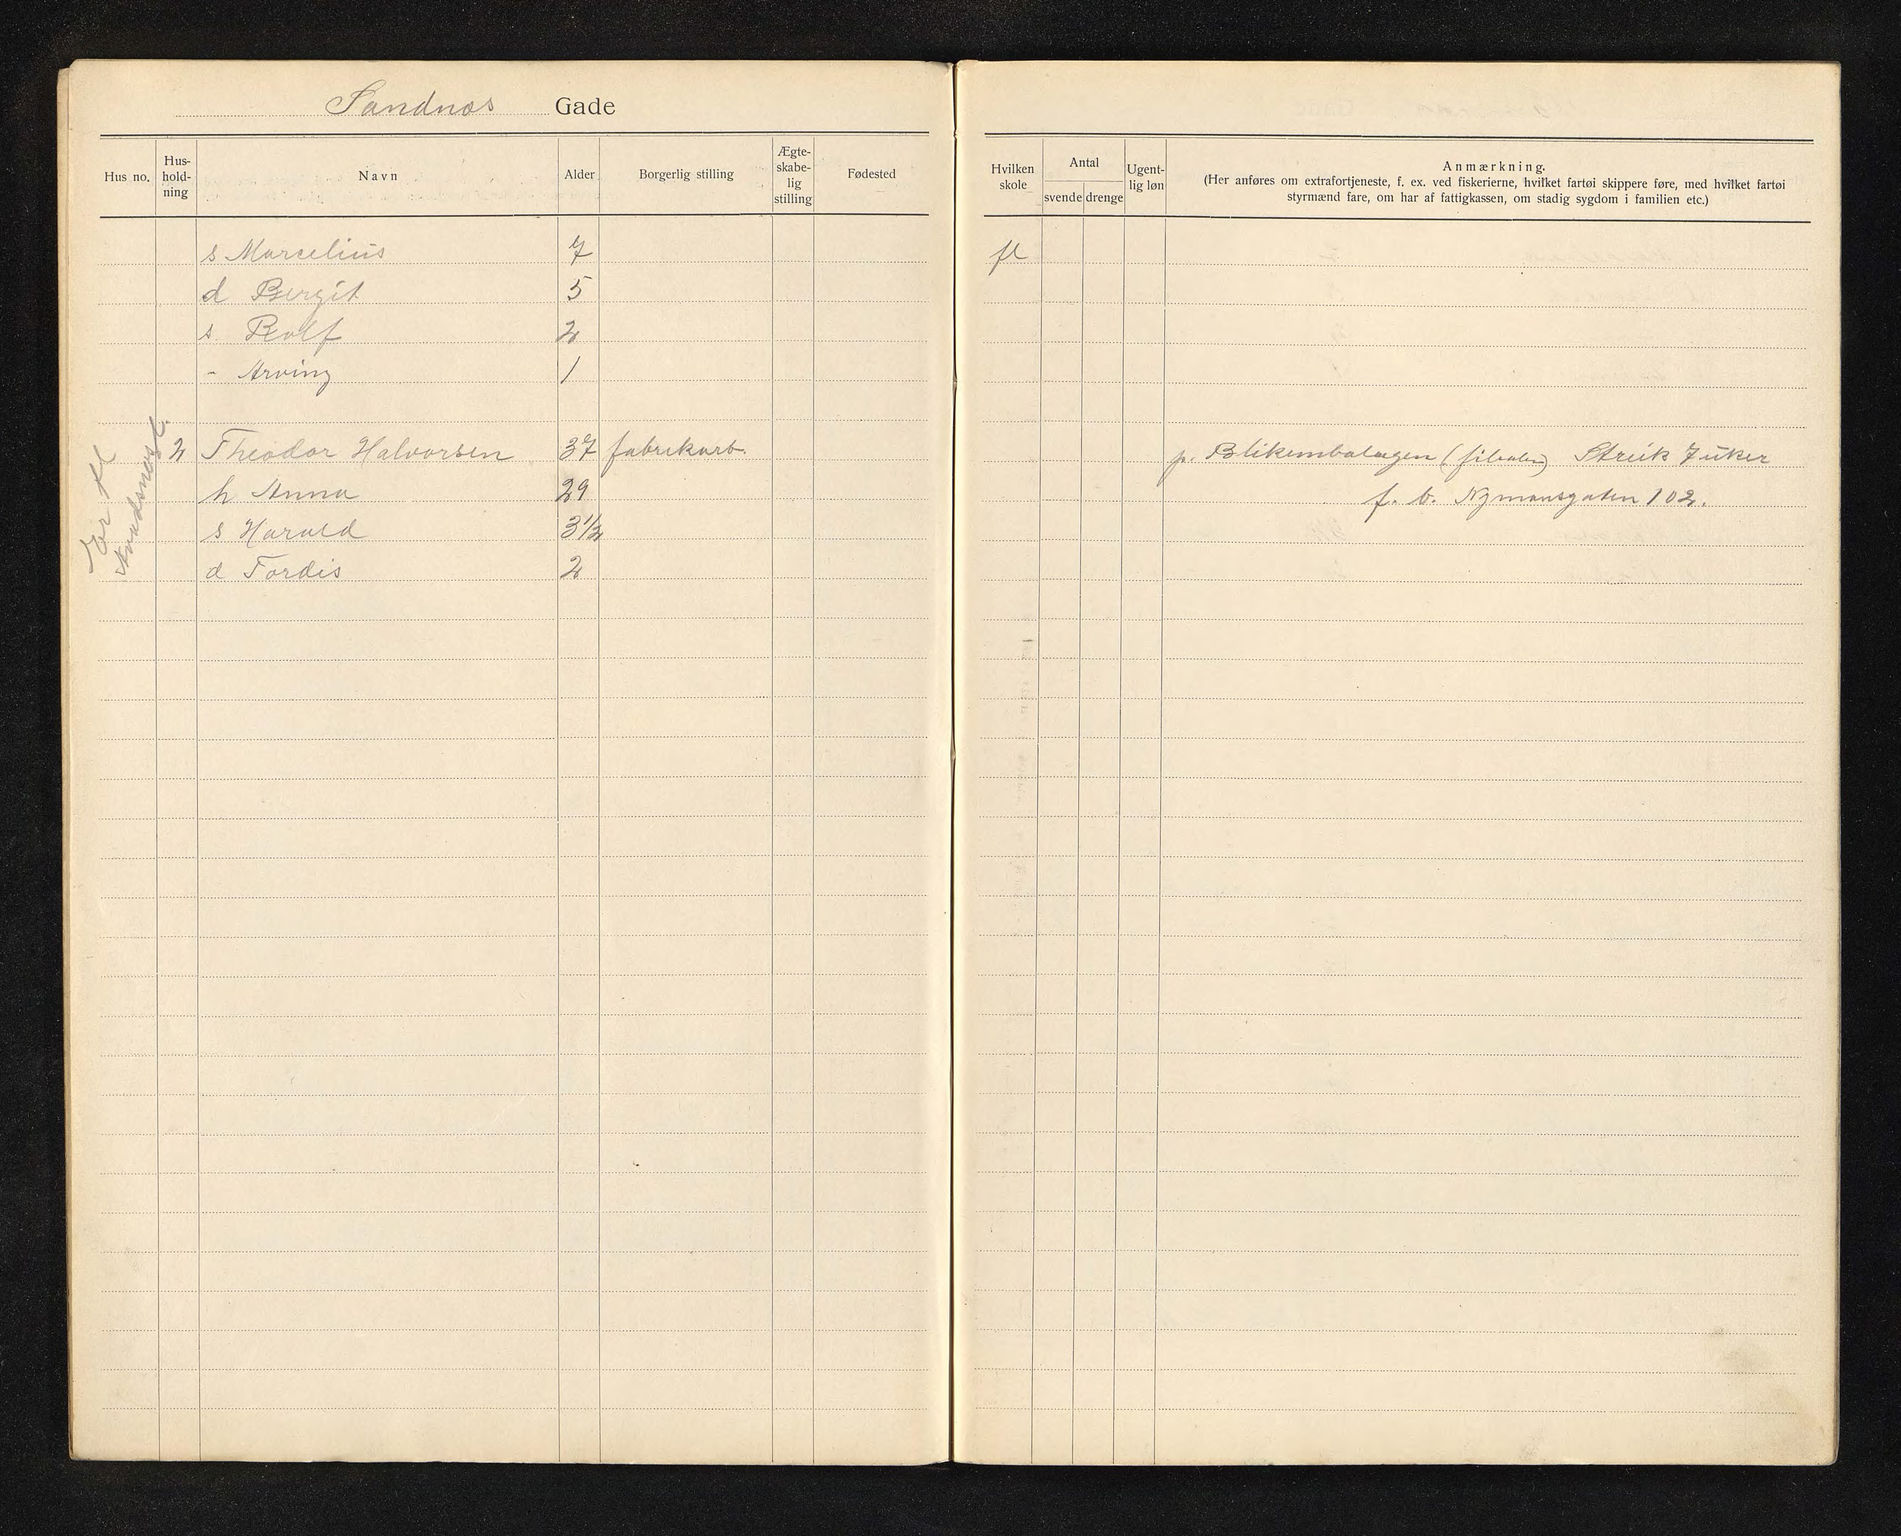 Sandnæs Gade
Hus no. Hus-hold-ning Navn Alder Borgerlig stilling Ægte-skabe-lig stilling Fødested
s Marcelius 7
d Bergit 5
s Rolf 2
- Arving 1
2 Theodor Halvorsen 37 fabrikarb.
h Anna 29
s Harald 3 1/2
d Tordis 2
Er fl
Hvilken skole Antal svende drenge Ugent-lig løn Anmærkning.
(Her anføres om extrafortjeneste, f. ex. ved fiskerierne, hvilket fartøi skippere føre, med hvilket fartøi
styrmænd fare, om har af fattigkassen, om stadig sygdom i familien etc.)
fl
p. Blikembalagen (filialen) Streik 7 uker
f. b. Nymansgaten 102.